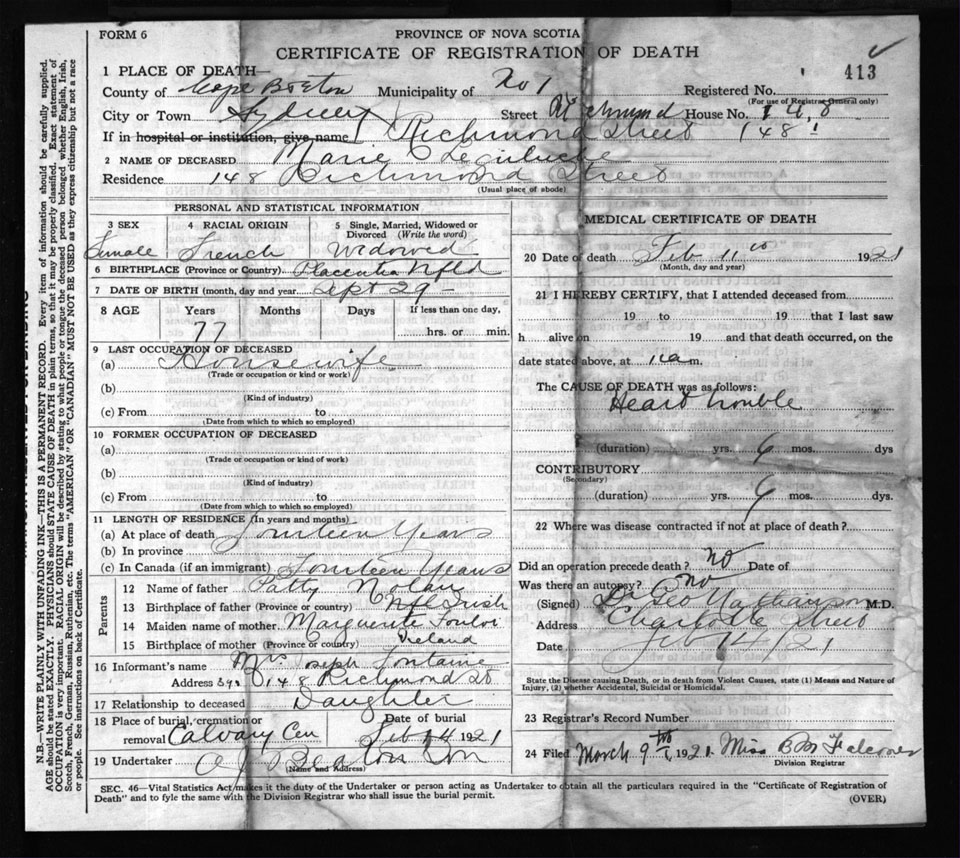 FORM 6
PROVINCE OF NOVA SCOTIA
CERTIFICATE OF REGISTRATION OF DEATH
413
1 PLACE OF DEATH—
County of Cape Breton Municipality of No 1 Registered No.
(For use of Registrar General only)
City or Town Sydney Street Richmond House No. 148
If in hospital or institution, give name Richmond Street 148
2 NAME OF DECEASED Marie
Residence 148 Richmond Street
(Usual place of abode)
PERSONAL AND STATISTICAL INFORMATION
3 SEX Female
4 RACIAL ORIGIN French
5 Single, Married, Widowed or Divorced (Write the word) Widowed
6 BIRTHPLACE (Province or Country) Placentia Nfld
7 DATE OF BIRTH (month, day and year) Sept 29 -
8 AGE Years Months Days If less than one day,
77 hrs. or min.
9 LAST OCCUPATION OF DECEASED
(a) Housewife
(Trade or occupation or kind of work)
(b)
(Kind of industry)
(c) From to
(Date from which to which so employed)
10 FORMER OCCUPATION OF DECEASED
(a)
(Trade or occupation or kind of work)
(b)
(Kind of industry)
(c) From to
(Date from which to which so employed)
11 LENGTH OF RESIDENCE (In years and months)
(a) At place of death Fourteen Years
(b) In province
(c) In Canada (if an immigrant) Fourteen Years
Parents
12 Name of father Patty Nolan
13 Birthplace of father (Province or country) Nfl Irish
14 Maiden name of mother Marguerite
15 Birthplace of mother (Province or country) Ireland
16 Informant's name Mrs Joseph Fontaine
Address 148 Richmond
17 Relationship to deceased Daughter
18 Place of burial, cremation or removal Calvary Cem Date of burial Feb 14 1921
19 Undertaker A J Beaton Son
(Name and Address)
MEDICAL CERTIFICATE OF DEATH
20 Date of death Feb 11 1921
(Month, day and year)
21 I HEREBY CERTIFY, that I attended deceased from
19 to 19 that I last saw
h alive on 19 and that death occurred, on the
date stated above, at 1 a m.
The CAUSE OF DEATH was as follows:
Heart trouble
(duration) yrs. 6 mos. dys
CONTRIBUTORY
(Secondary)
(duration) yrs. 6 mos. dys.
22 Where was disease contracted if not at place of death?
Did an operation precede death? No Date of
Was there an autopsy? No
(Signed) Dr Geo Nathanson M.D.
Address Charlotte Street
Date Feb /21
State the Disease causing Death, or in death from Violent Causes, state (1) Means and Nature of
Injury, (2) whether Accidental, Suicidal or Homicidal.
23 Registrar's Record Number
24 Filed March 9th 1921 Miss B M Falconer
Division Registrar
SEC. 46—Vital Statistics Act makes it the duty of the Undertaker or person acting as Undertaker to obtain all the particulars required in the "Certificate of Registration of
Death" and to fyle the same with the Division Registrar who shall issue the burial permit.
(OVER)
N.B.—WRITE PLAINLY WITH UNFADING INK—THIS IS A PERMANENT RECORD. Every item of information should be carefully supplied.
AGE should be stated EXACTLY. PHYSICIANS should STATE CAUSE OF DEATH in plain terms, so that it may be properly classified. Exact statement of
OCCUPATION is very important. RACIAL ORIGIN will be described by stating to what people or tongue the deceased person belonged whether English, Irish,
Scotch, French, German, Russian, Ruthenian, etc. The terms "AMERICAN" OR "CANADIAN" MUST NOT BE USED as they express citizenship but not a race
or people. See instructions on back of Certificate.